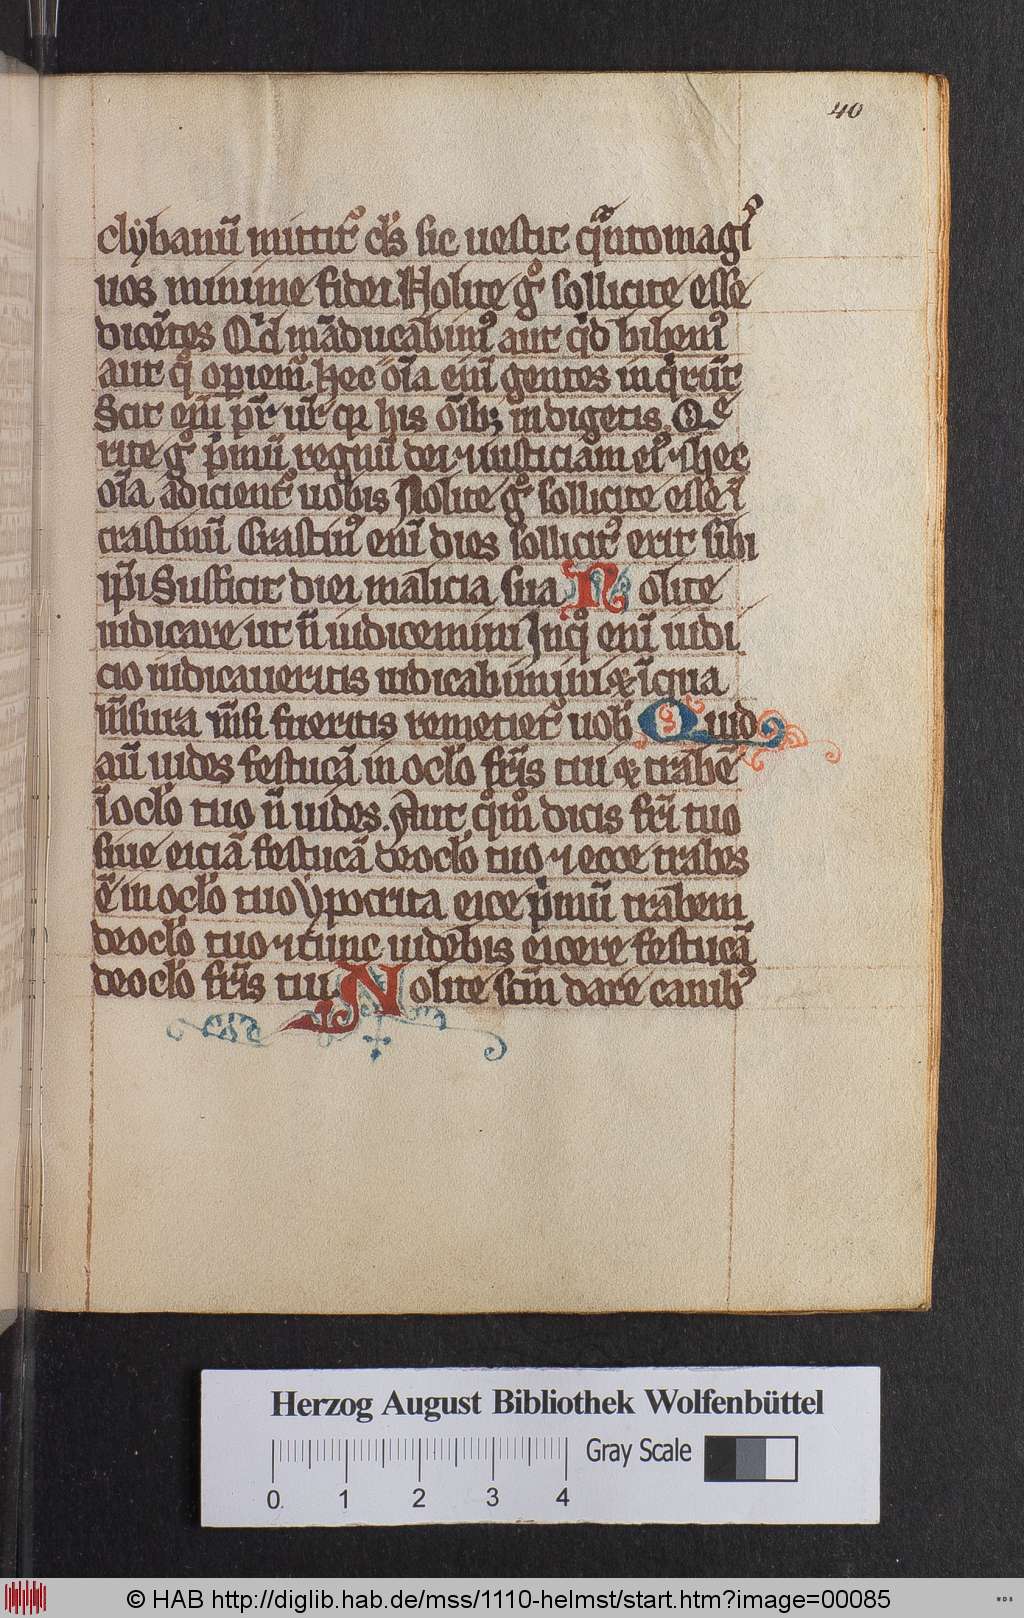 40
clybanū mittit᷑ ds̄ sic uestit q̄ntomagꝭ
uos minime fidei. Nolite gͦ sollicite esse
dicētes Qͥd māducabimꝰ aut qͥd bibemꝰ
aut qͦ opiemᷣ. Hec oīa enī gentes inqͥrūt
Scit enī pr̄ ur̄ qꝛ his oīb; indigetis. Qͤ
rite gͦ pͥmū regnū dei ⁊ iusticiam eiꝰ ⁊ hec
oīa adicient᷑ uobis Nolite gͦ sollicite esse ī
crastinū Crastinꝰ enī dies sollicitꝰ erit sibi
ip̄i Sufficit diei malicia sua Nolite
iudicare ut n̄ iudicemini In qͦ enī iudi
cio iudicaueritis iudicabimini & ī qua
m̄sura m̄si fueritis remetiet᷑ uob̄ Quid
aū uides festucā in oclo fr̄is tui & trabē
ī oclo tuo n̄ uides. Aut qͦmͦ dicis fr̄i tuo
sine eiciā festucā de oclo tuo ⁊ ecce trabes
ē in oclo tuo ypocrita eice pͥmū trabem
de oclo tuo ⁊ tunc uidebis eicere festucā
de oclo fr̄is tui. Nolite scm̄ dare canibꝰ
Herzog August Bibliothek Wolfenbüttel
0 1 2 3 4 Gray Scale
© HAB http://diglib.hab.de/mss/1110-helmst/start.htm?image=00085